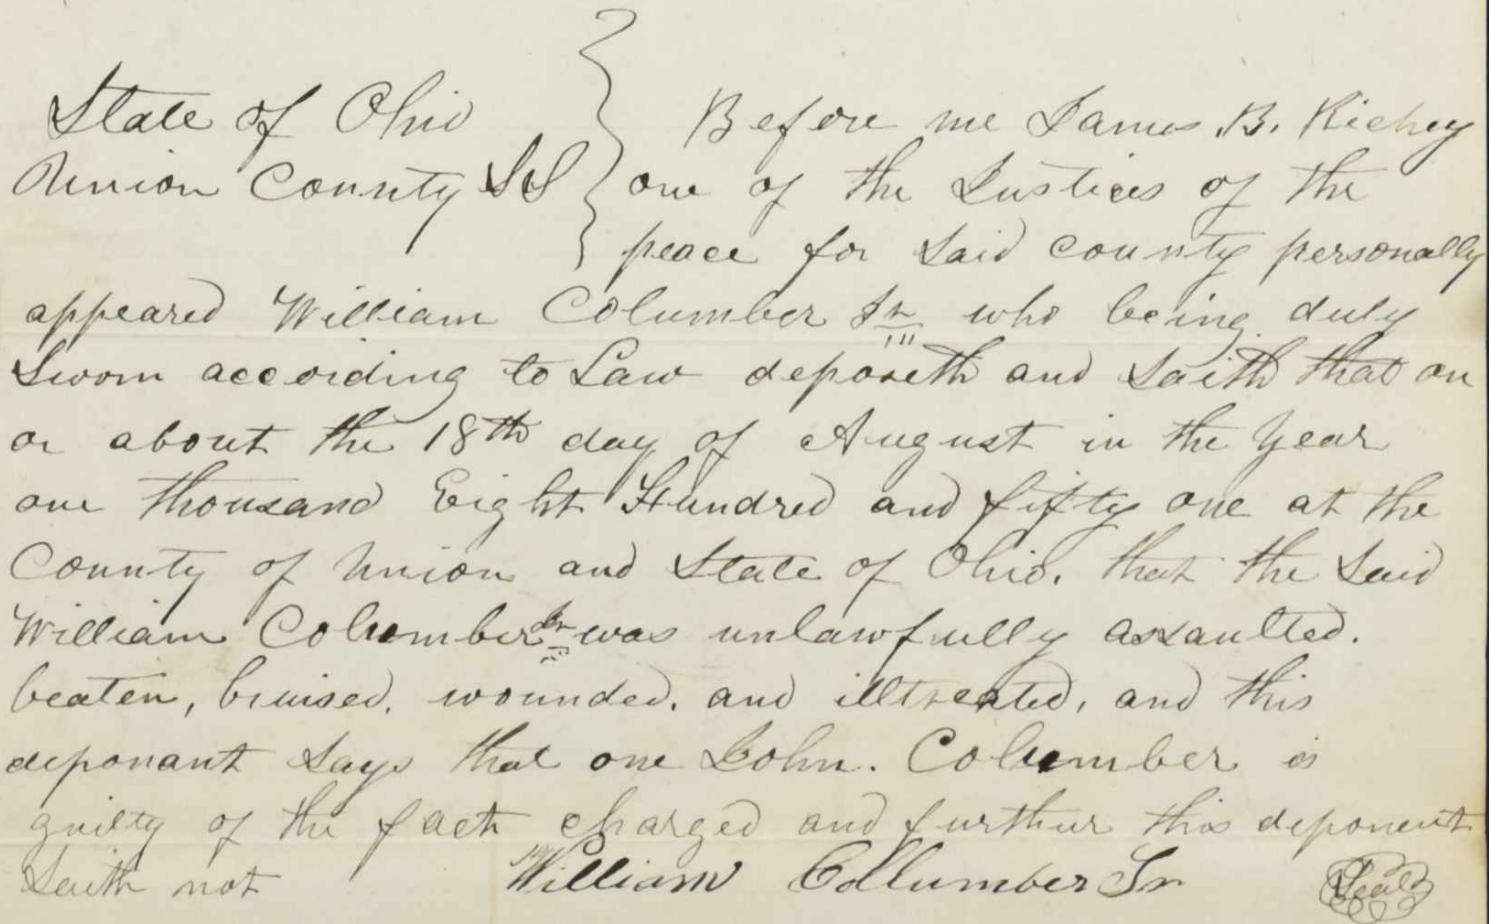 State of Ohio
Union County SS
Before me James B. Richey
one of the Justices of the
peace for Said county personally
appeared William Columber Sr who being duly
Sworn according to Law deposeth and Saith that on
or about the 18th day of August in the Year
one thousand Eight Hundred and fifty one at the
County of Union and State of Ohio. that the Said
William Columber Sr was unlawfully assaulted.
beaten, bruised, wounded. and illtreated, and this
deponant Says that one John. Columber is
guilty of the fact charged and further this deponent
Saith not William Collumber Sr Seal